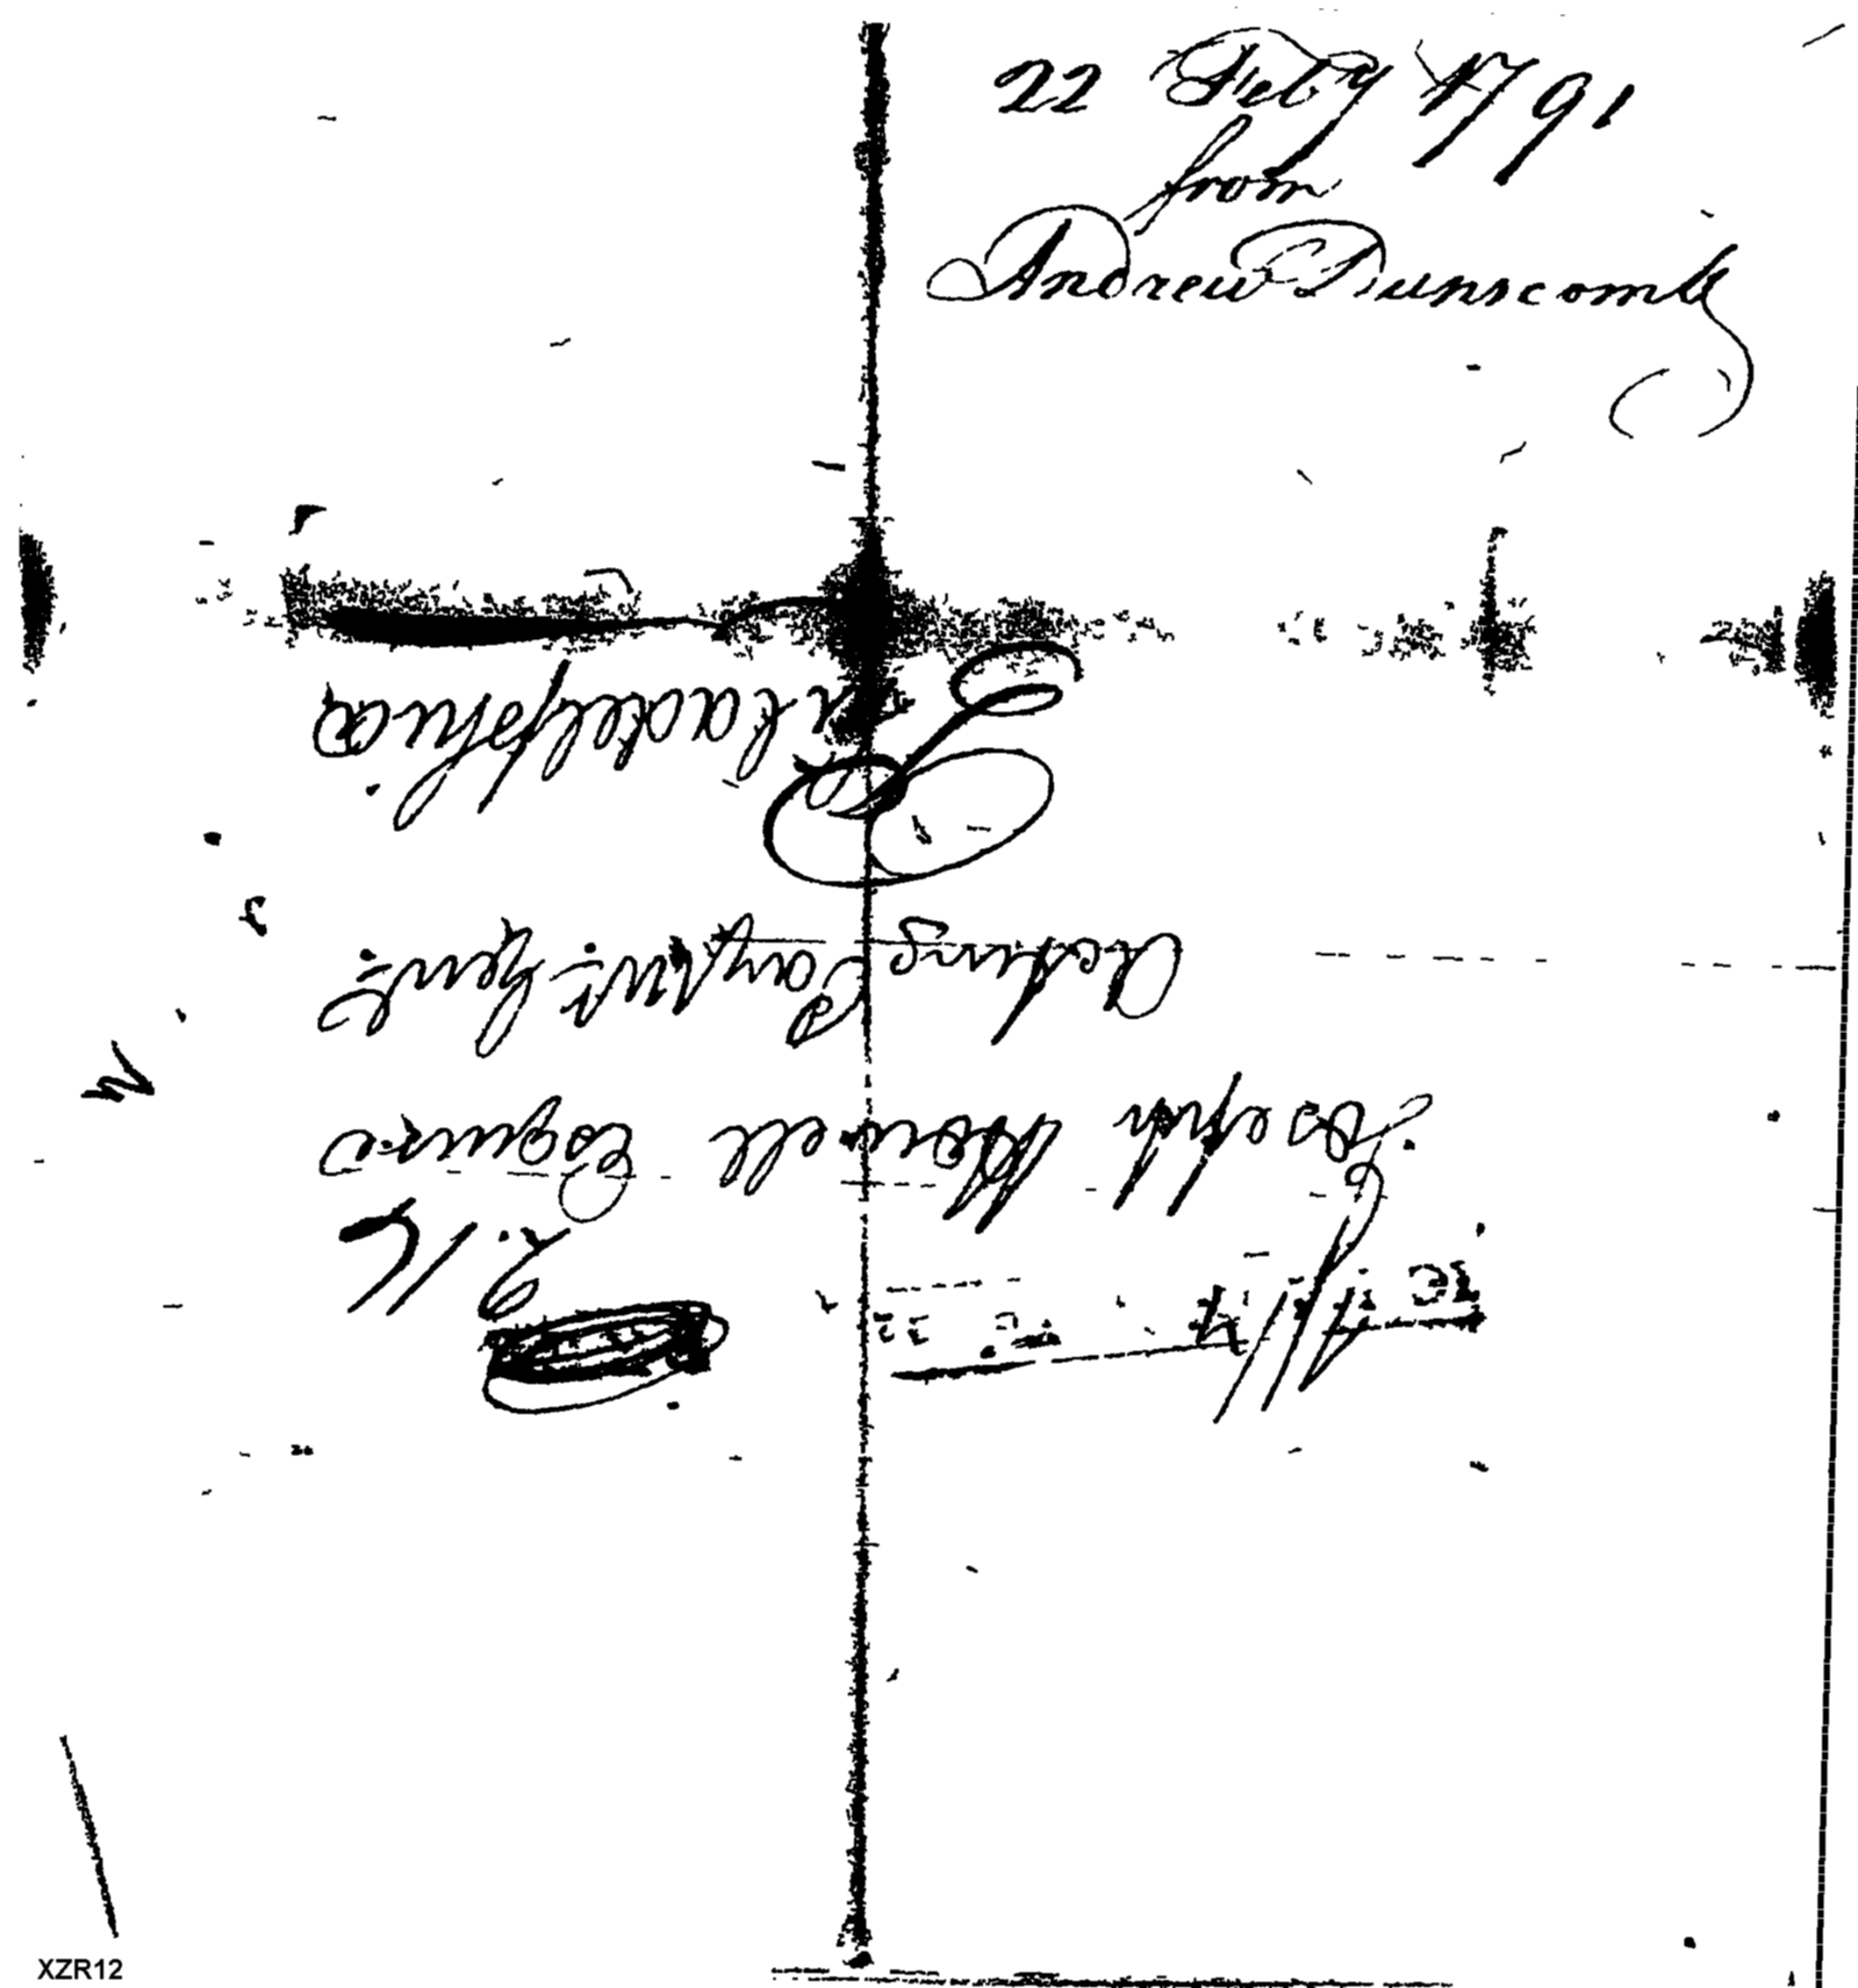 22 Feby 1791
from
Andrew Dunscomb
Joseph Howell Esquire
Acting Paymr. Genl.
Philadelphia
XZR12